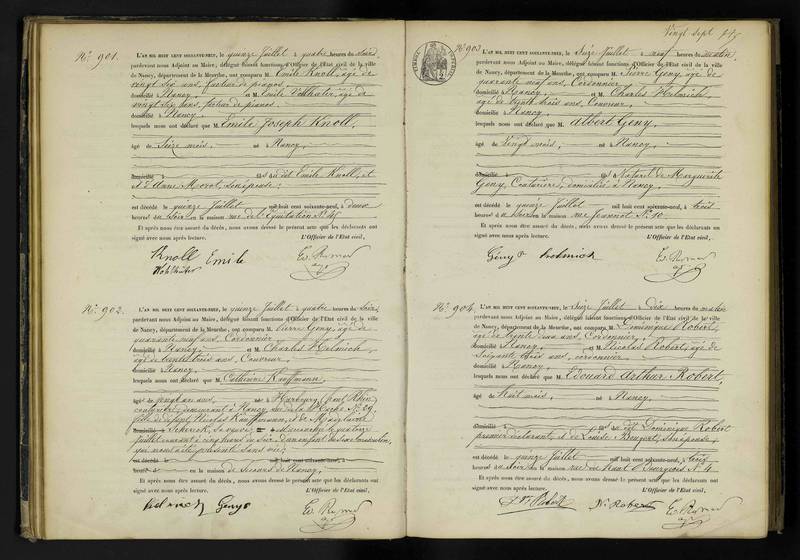 N.º 901.
L'AN MIL HUIT CENT SOIXANTE-NEUF, le quinze Juillet à quatre heures du soir
pardevant nous Adjoint au Maire, délégué faisant fonctions d'Officier de l'Etat civil de la ville
de Nancy, département de la Meurthe, ont comparu M. Emile Knoll, âgé de
vingt six ans, facteur de pianos
domicilié à Nancy et M. Emile âgé de
vingt six ans, facteur de pianos,
domicilié à Nancy
lesquels nous ont déclaré que M. Emile Joseph Knoll,
âgé de Seize mois, né à Nancy,
domicilié à dit Emile Knoll, et
et d'Anne Morot, son épouse;
est décédé le quinze Juillet mil huit cent soixante-neuf, à deux
heures du soir en la maison rue de l'Equitation N.º
Et après nous être assuré du décès, nous avons dressé le présent acte que les déclarants ont
signé avec nous après lecture. L'Officier de l'Etat civil,
Knoll Emile
N.º 902.
L'AN MIL HUIT CENT SOIXANTE-NEUF, le quinze Juillet à quatre heures du soir,
pardevant nous Adjoint au Maire, délégué faisant fonctions d'Officier de l'Etat civil de la ville
de Nancy, département de la Meurthe, ont comparu M. Pierre Geny, âgé de
quarante neuf ans, Cordonnier,
domicilié à Nancy et M. Charles Helmich,
âgé de trente trois ans, Couvreur,
domicilié à Nancy,
lesquels nous ont déclaré que M. Catherine Kauffmann,
âgé de ans, né à Harbourg (haut Rhin)
demeurant à Nancy, rue de la N.º
fille de défunt Nicolas Kauffmann, et de Madelaine
le quatre
Juillet courant à cinq heures du soir d'un enfant du sexe
qui nous a été présenté sans vie;
est décédé le mil huit cent soixante-neuf, à
heures en la maison de Secours de Nancy,
Et après nous être assuré du décès, nous avons dressé le présent acte que les déclarants ont
signé avec nous après lecture. L'Officier de l'Etat civil,
Helmich Geny
Vingt sept
N.º 903
TIMBRE IMPERIAL
L'AN MIL HUIT CENT SOIXANTE-NEUF, le Seize Juillet à neuf heures du matin
pardevant nous Adjoint au Maire, délégué faisant fonctions d'Officier de l'Etat civil de la ville
de Nancy, département de la Meurthe, ont comparu M. Pierre Geny, âgé de
quarante neuf ans, Cordonnier,
domicilié à Nancy et M. Charles Helmich,
âgé de trente trois ans, Couvreur,
domicilié à Nancy,
lesquels nous ont déclaré que M. Albert Geny,
âgé de Vingt mois, né à Nancy,
domicilié à fils Naturel de Marguerite
Geny, Couturière, domiciliée à Nancy,
est décédé le quinze Juillet mil huit cent soixante-neuf, à trois
heures du soir en la maison rue Jeannot N.º 10
Et après nous être assuré du décès, nous avons dressé le présent acte que les déclarants ont
signé avec nous après lecture. L'Officier de l'Etat civil,
Gény P
N.º 904.
L'AN MIL HUIT CENT SOIXANTE-NEUF, le Seize Juillet à Dix heures du matin
pardevant nous Adjoint au Maire, délégué faisant fonctions d'Officier de l'Etat civil de la ville
de Nancy, département de la Meurthe, ont comparu M. Dominique Robert,
âgé de trente deux ans, Cordonnier,
domicilié à Nancy et M. Nicolas Robert, âgé de
Soixante trois ans, cordonnier,
domicilié à Nancy,
lesquels nous ont déclaré que M. Edouard Arthur Robert,
âgé de Huit mois, né à Nancy,
domicilié à dit Dominique Robert
premier déclarant, et de Louise son épouse,
est décédé le quinze Juillet mil huit cent soixante-neuf, à
heures du Soir en la maison rue du haut Bourgeois N.º 4
Et après nous être assuré du décès, nous avons dressé le présent acte que les déclarants ont
signé avec nous après lecture. L'Officier de l'Etat civil,
Robert N. Robert